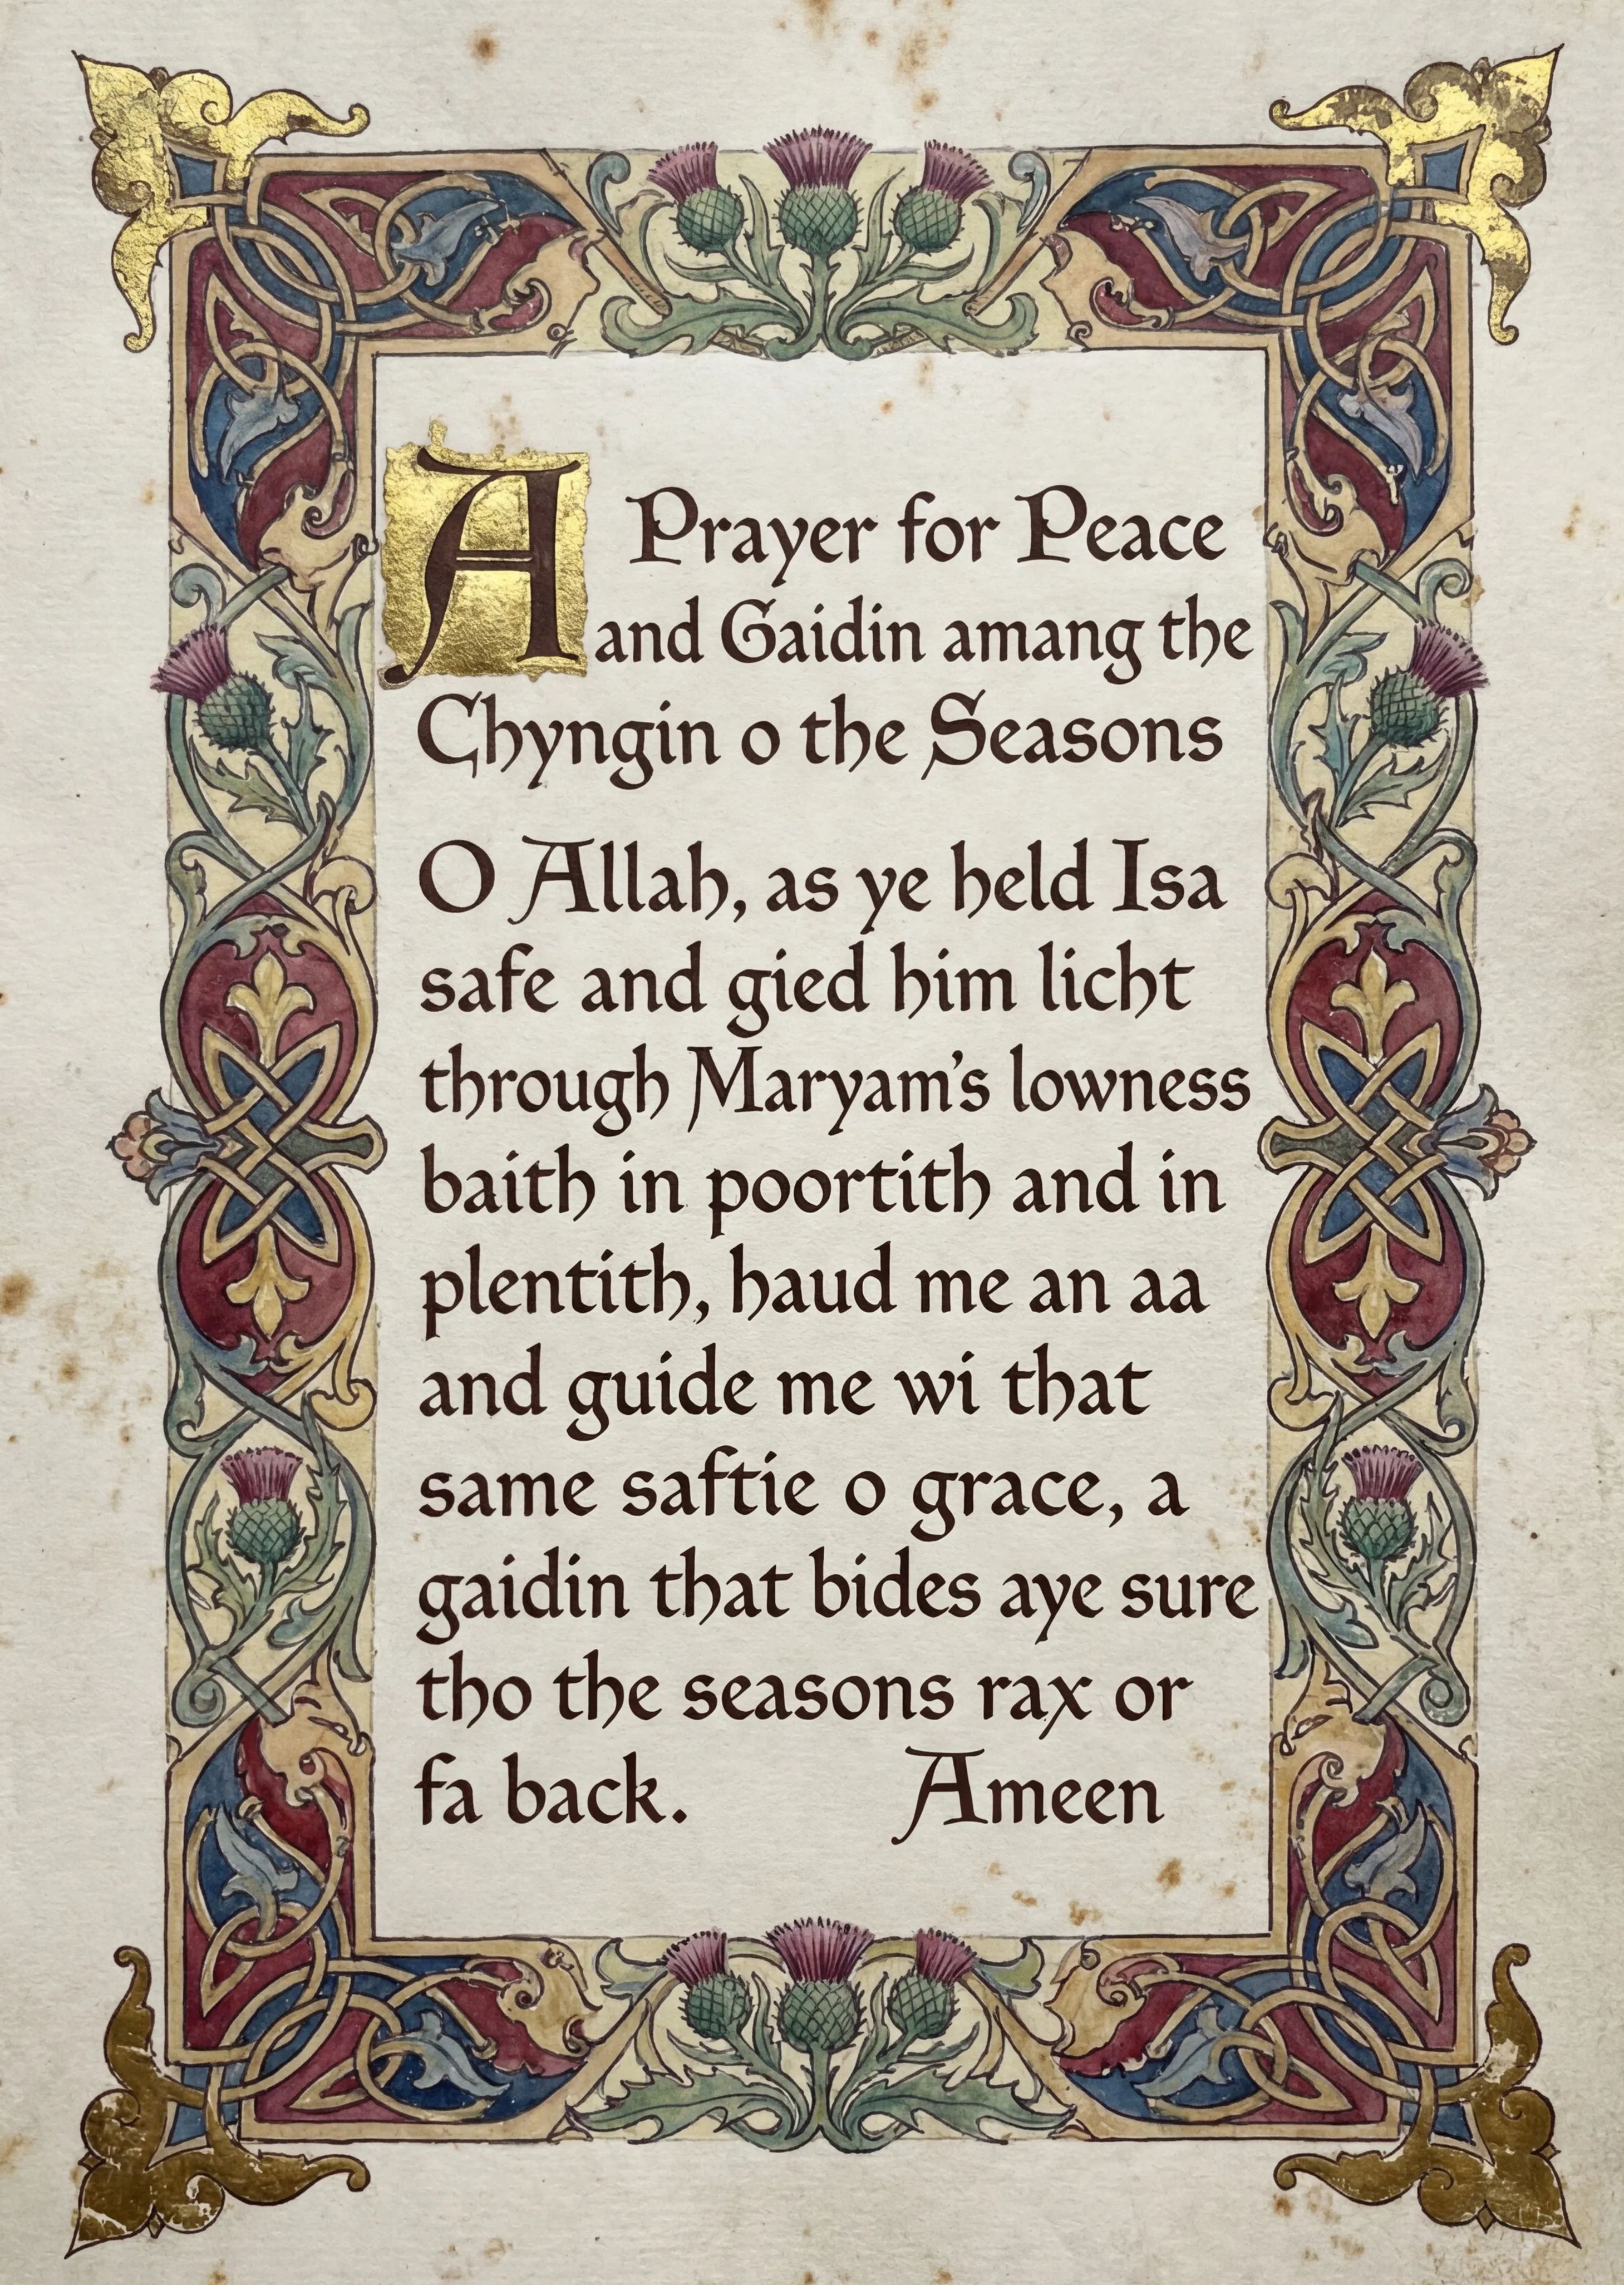 A Prayer for Peace
and Gaidin amang the
Chyngin o the Seasons
O Allah, as ye held Isa
safe and gied him licht
through Maryam's lowness
baith in poortith and in
plentith, haud me an aa
and guide me wi that
same saftie o grace, a
gaidin that bides aye sure
tho the seasons rax or
fa back. Ameen